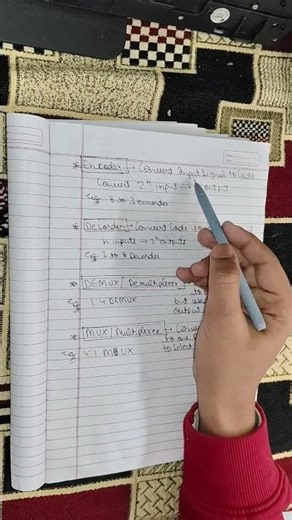 * Encoder → Convert Input Signal to Code
Convert 2ⁿ input → output
Eg. 8 to 3 encoder
* Decoder → Convert Code to
n inputs → 2ⁿ outputs
Eg. 3 to 8 Decoder
* DEMUX / Demultiplexer →
to
Eg. 1:4 DEMUX but use
output
* MUX / Multiplexer → Conv
to
Eg. 4:1 MUX to select